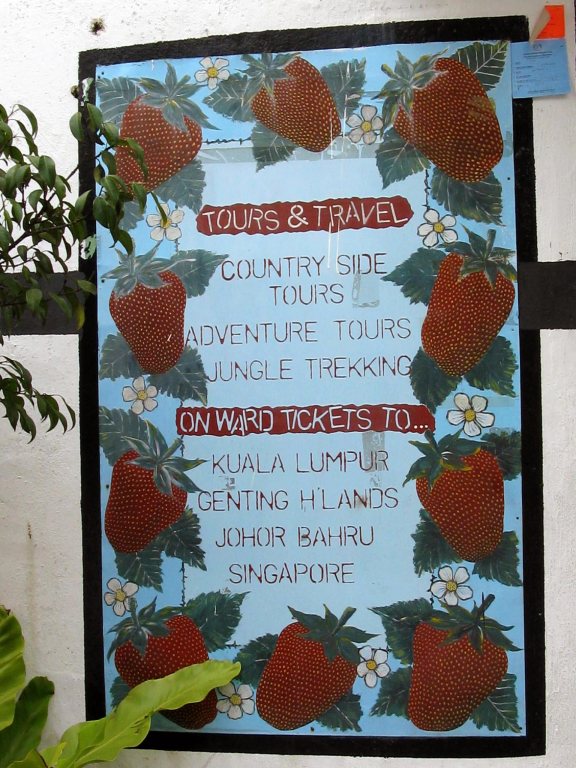 TOURS & TRAVEL
COUNTRY SIDE
TOURS
ADVENTURE TOURS
JUNGLE TREKKING
ON WARD TICKETS TO...
KUALA LUMPUR
GENTING H'LANDS
JOHOR BAHRU
SINGAPORE